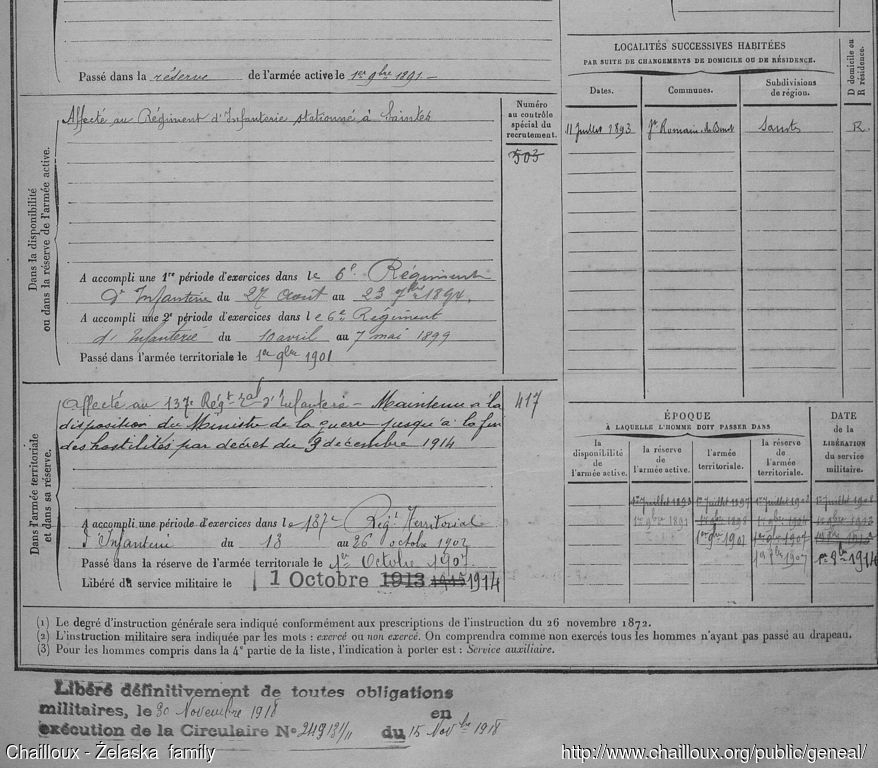 Passé dans la réserve de l'armée active le 1er 9bre 1891
Dans la disponibilité
ou dans la réserve de l'armée active.
Affecté au Régiment d'Infanterie stationné à Saintes
Numéro
au contrôle
spécial du
recrutement.
503
A accompli une 1re période d'exercices dans le 6e Régiment
d'Infanterie du 27 Août au 23 7bre 1894.
A accompli une 2e période d'exercices dans le 6e Régiment
d'Infanterie du 10 avril au 7 mai 1899
Passé dans l'armée territoriale le 1er 9bre 1901
Dans l'armée territoriale
et dans sa réserve.
Affecté au 137e Régt Zal d'Infanterie - Maintenu à la
disposition du Ministre de la guerre jusqu'à la fin
des hostilités par décret du 9 décembre 1914
417
A accompli une période d'exercices dans le 137e Régt Territorial
d'Infanterie du 13 au 26 octobre 1902
Passé dans la réserve de l'armée territoriale le 1er Octobre 1907
Libéré du service militaire le 1 Octobre 1913 1914
LOCALITÉS SUCCESSIVES HABITÉES
PAR SUITE DE CHANGEMENTS DE DOMICILE OU DE RÉSIDENCE.
D domicile ou
R résidence.
Dates. Communes. Subdivisions
de région.
11 Juillet 1893 St Romain de Benet Saintes R
ÉPOQUE
À LAQUELLE L'HOMME DOIT PASSER DANS
DATE
DE LA
LIBÉRATION
du service
militaire.
la
disponibilité
de
l'armée active.
la réserve
de
l'armée active.
l'armée
territoriale.
la réserve
de
l'armée
territoriale.
1er Juillet 1893 1er Juillet 1897 1er Juillet 1908
1er 9bre 1891 1er 9bre 1898
1er 9bre 1901
1er 8bre 1907 1er 8bre 1914
(1) Le degré d'instruction générale sera indiqué conformément aux prescriptions de l'instruction du 26 novembre 1872.
(2) L'instruction militaire sera indiquée par les mots : exercé ou non exercé. On comprendra comme non exercés tous les hommes n'ayant pas passé au drapeau.
(3) Pour les hommes compris dans la 4e partie de la liste, l'indication à porter est : Service auxiliaire.
Libéré définitivement de toutes obligations
militaires, le 30 Novembre 1918 en
exécution de la Circulaire No du 15 Novbre 1918
Chailloux - Żelaska family
http://www.chailloux.org/public/geneal/